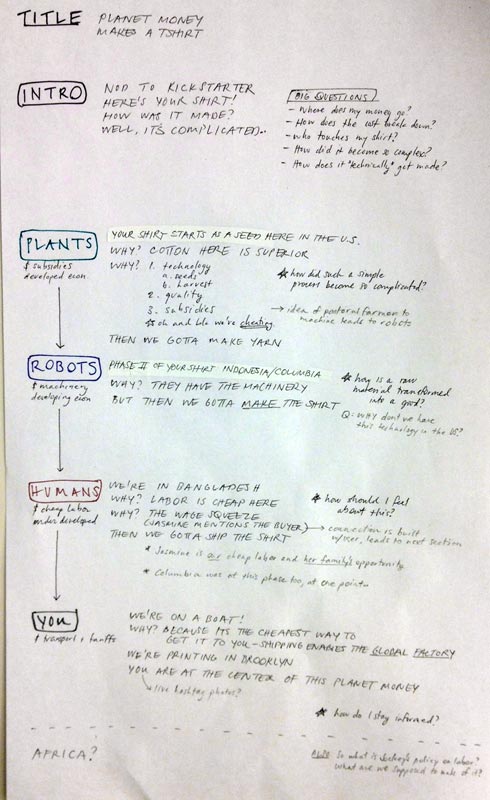 TITLE
PLANET MONEY
MAKES A TSHIRT
INTRO
NOD TO KICKSTARTER
HERE'S YOUR SHIRT!
HOW WAS IT MADE?
WELL, IT'S COMPLICATED..
BIG QUESTIONS
- Where does my money go?
- How does the cost break down?
- Who touches my shirt?
- How did it become so complex?
- How does it "technically" get made?
PLANTS
$ subsidies
developed econ
YOUR SHIRT STARTS AS A SEED HERE IN THE U.S.
WHY? COTTON HERE IS SUPERIOR
WHY? 1. technology
a. seeds
b. harvest
2. quality
3. subsidies
* oh and btw we're cheating
* how did such a simple
process become so complicated?
→ idea of pastoral farmer to
machine leads to robots
THEN WE GOTTA MAKE YARN
ROBOTS
$ machinery
developing econ
PHASE II OF YOUR SHIRT INDONESIA/COLUMBIA
WHY? THEY HAVE THE MACHINERY
BUT THEN WE GOTTA MAKE THE SHIRT
* how is a raw
material transformed
into a good?
Q: WHY don't we have
this technology in the US?
HUMANS
$ cheap labor
under developed
WE'RE IN BANGLADESH
WHY? LABOR IS CHEAP HERE
WHY? THE WAGE SQUEEZE
(JASMINE MENTIONS THE BUYER)
THEN WE GOTTA SHIP THE SHIRT
* how should I feel
about this?
→ connection is built
w/user, leads to next section
* Jasmine is our cheap labor and her family's opportunity
* Columbia was at this phase too, at one point
YOU
$ transport + tariffs
WE'RE ON A BOAT!
WHY? BECAUSE ITS THE CHEAPEST WAY TO
GET IT TO YOU - SHIPPING ENABLES THE GLOBAL FACTORY
WE'RE PRINTING IN BROOKLYN
YOU ARE AT THE CENTER OF THIS PLANET MONEY
→ live hashtag photos?
* how do I stay informed?
AFRICA?
ALSO: So what is policy on labor?
What are we supposed to make of it?